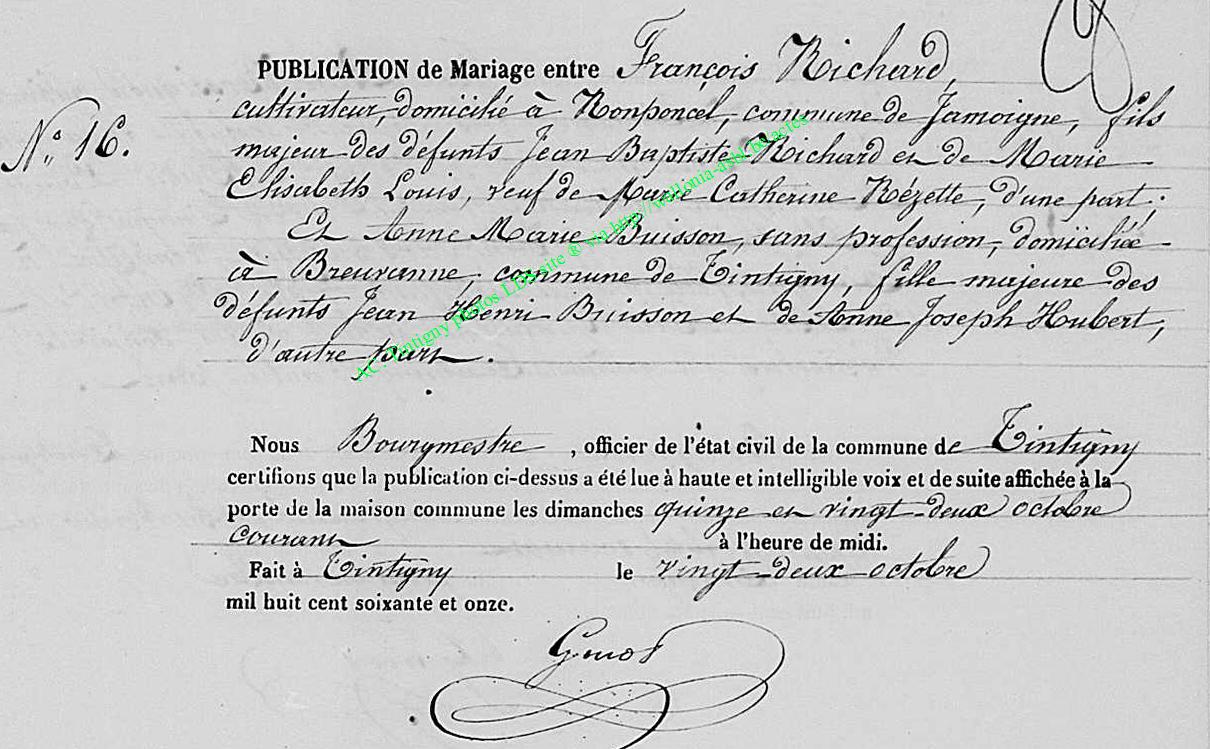 PUBLICATION de Mariage entre François Richard,
cultivateur, domicilié à Ronponcel, commune de Jamoigne, fils
N.° 16.
majeur des défunts Jean Baptiste Richard et de Marie
Elisabeth Louis, veuf de Marie Catherine Rézette, d'une part;
Et Anne Marie Buisson, sans profession, domiciliée
à Breuvanne, commune de Tintigny, fille majeure des
défunts Jean Henri Buisson et de Anne Joseph Houbert,
d'autre part.
AC. Tintigny photos LDS site ® via http://wallonia-asbl.be/actes
Nous Bourgmestre, officier de l'état civil de la commune de Tintigny
certifions que la publication ci-dessus a été lue à haute et intelligible voix et de suite affichée à la
porte de la maison commune les dimanches quinze et vingt-deux octobre
courant à l'heure de midi.
Fait à Tintigny le vingt-deux octobre
mil huit cent soixante et onze.